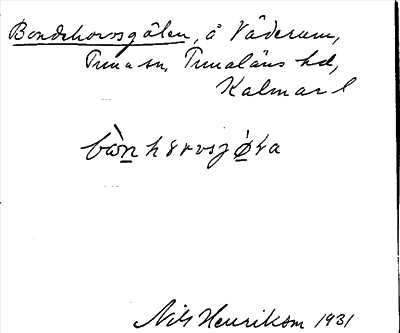 Bondehorvsgölen, å Väderum,
Tuna sn, Tunaläns hd,
Kalmar l
bònhorvsgøla
Nils Henrikson 1931